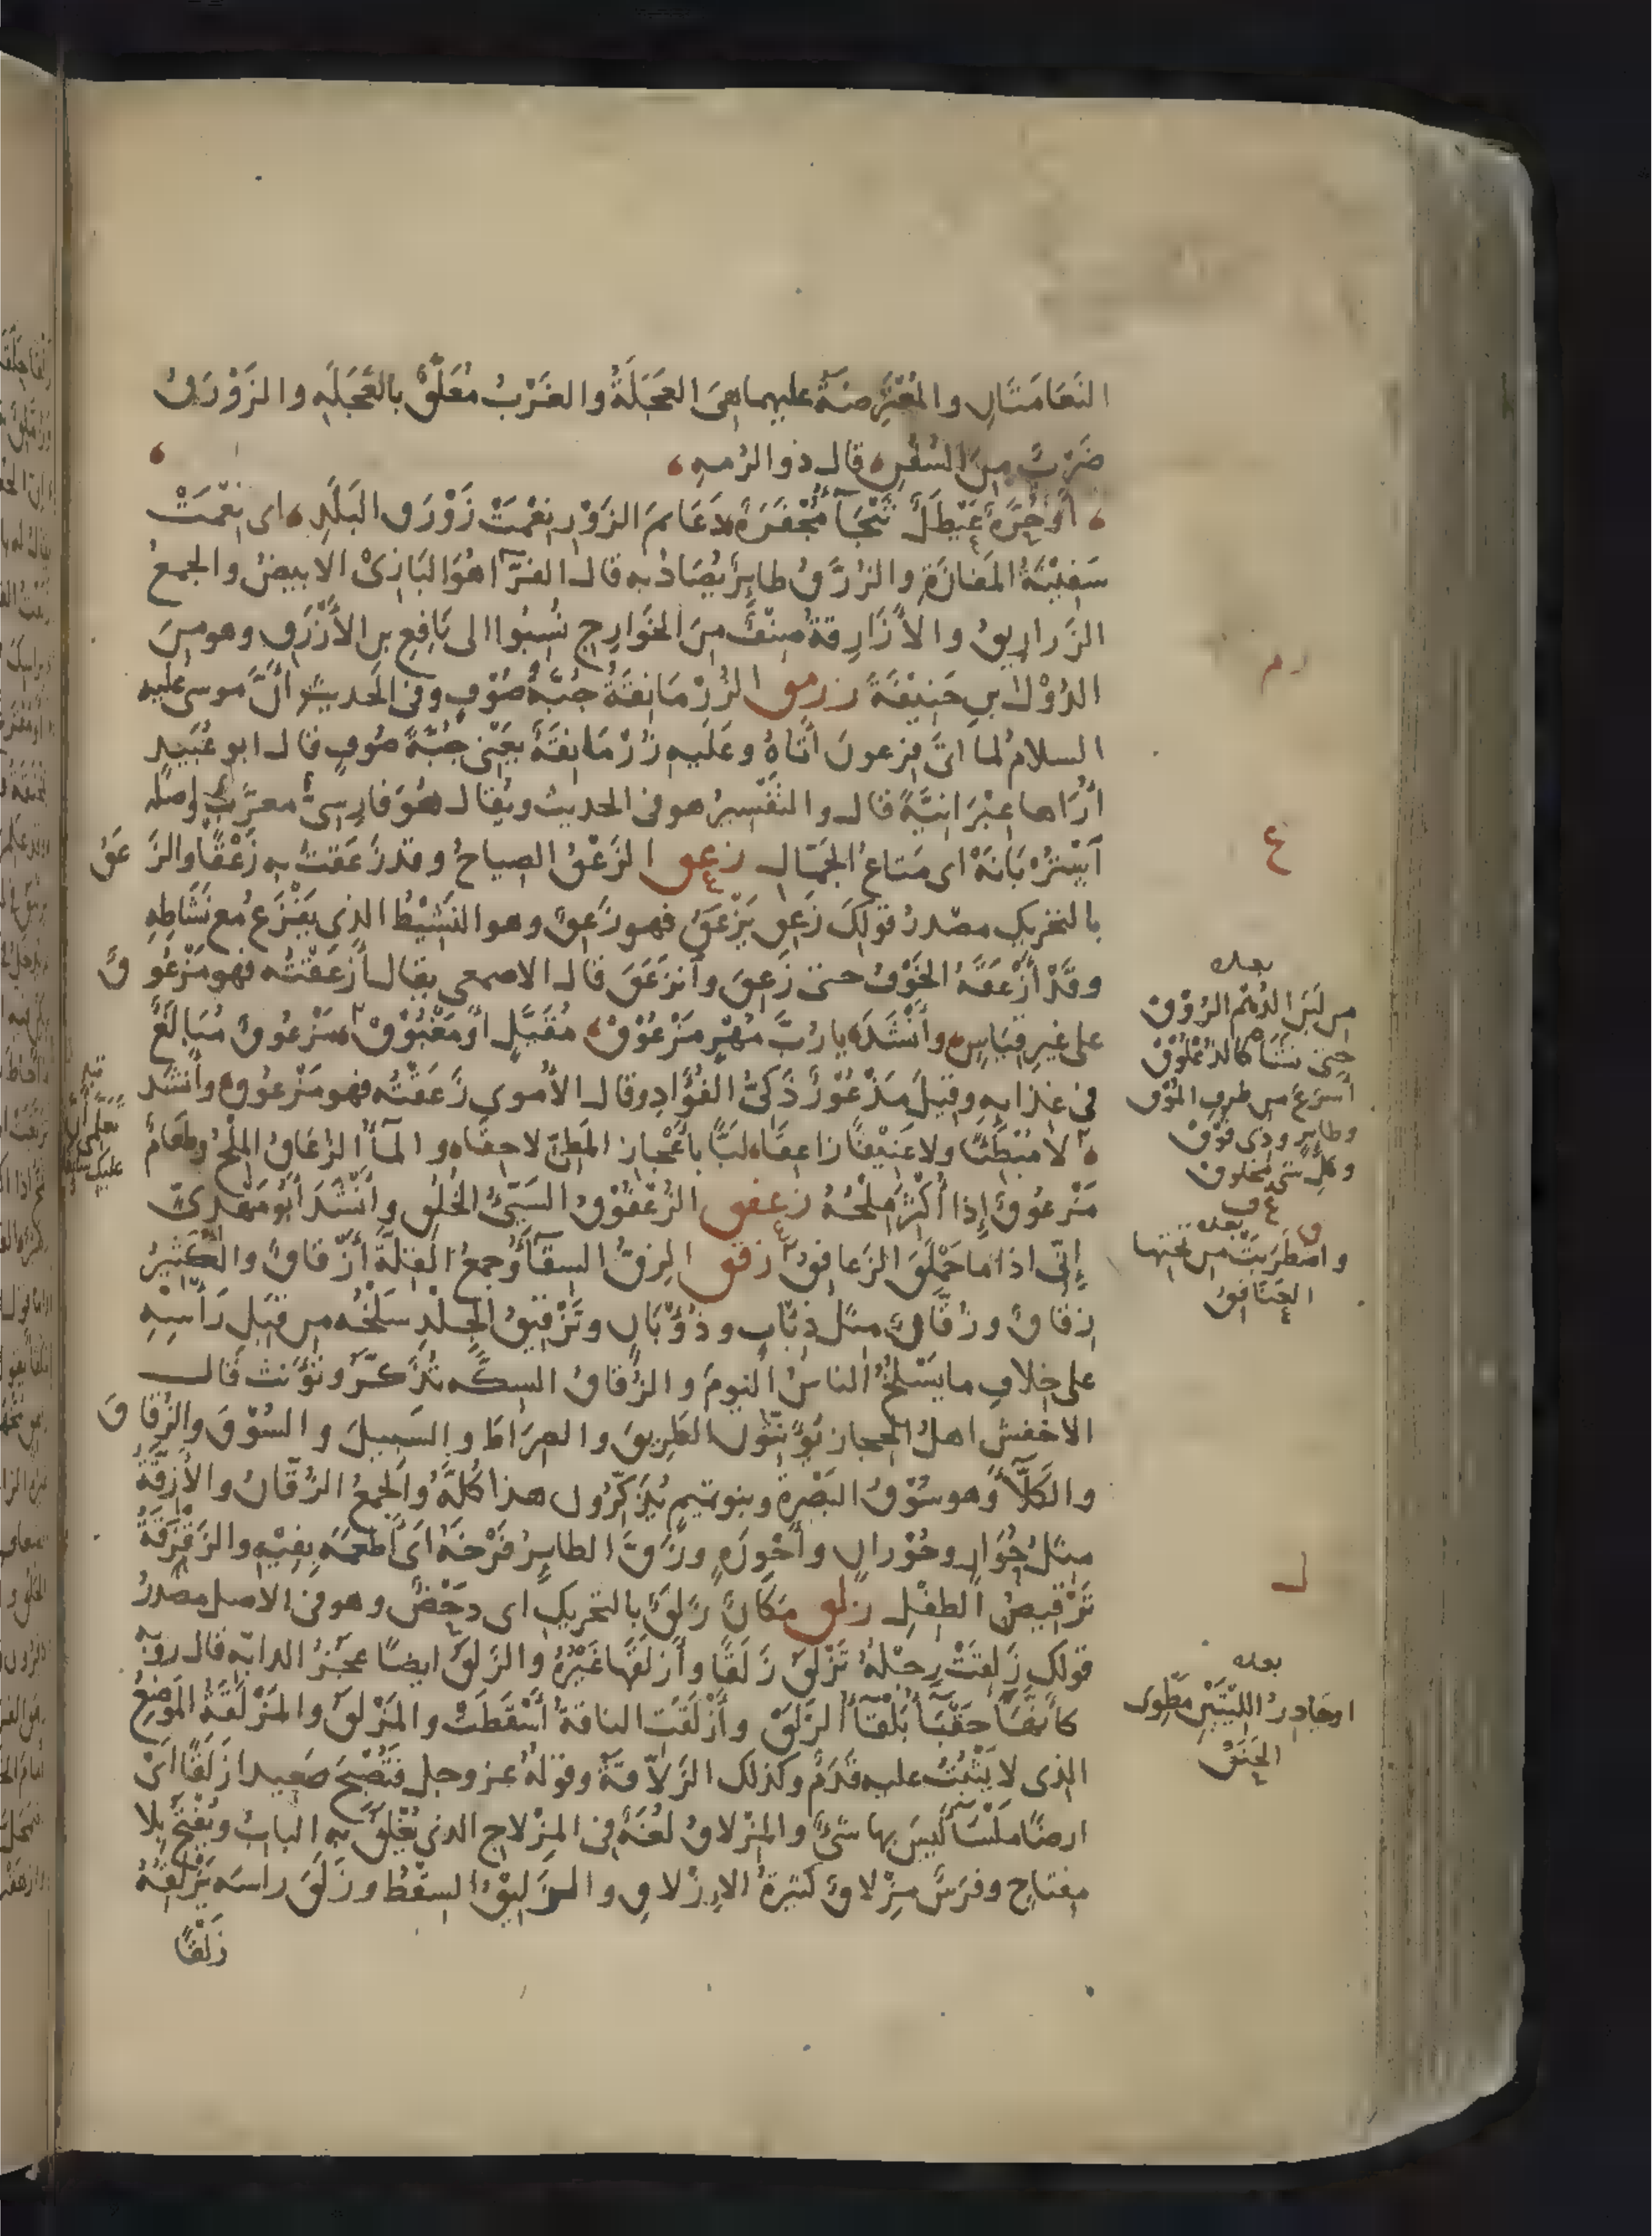 النَعَامَتَانِ والمُعْتَرِضَةُ عليهما هىَ العَجَلَةُ والغَرْبُ مُعَلَّقٌ بالعَجَلَةِ والزَوْرَقُ
ضَرْبٌ مِنَ السُفُنِ قال ذو الرُمهِ
أَوْ حُرَّةٌ عَيْطَلٌ ثَبْجَآءُ مُجْفَرَةٌ دَعَائمَ الزَوْرِ نِعْمَتْ زَوْرَقُ البَلَدِ اى نِعْمَتْ
سَفِيْنَةُ المَفازَةِ والزُرَّقُ طايرٌ يُصَادُ به قال الفَرَّآ هُوَ البَازِىْ الابيضُ والجمعُ
الزَراريقُ والأزَارِقةُ صِنْفٌ مِنَ الخَوَارِجِ نُسِبُوا الى نَافِعِ بنِ الأَزْرَقِ وهو مِنَ
الدُوْلِ بنِ حَنِيْفَةَ زرمق الزُرْمَانِقَةُ جُبَّةُ صُوْفٍ وفى الحديثِ أَنَّ موسى عليه
السلامُ لما اتى فِرعونَ أَتَاهُ وعَلَيهِ زُرْمَانِقَةٌ يَعْنِى جُبَّةَ صُوفٍ قال ابو عُبَيدٍ
أُرَاها عِبْرَانيَّةً قال والتَفْسِيرُ هو فى الحديث ويُقال هُوَ فارِسِىٌّ معرَّبٌ واصله
أُشْتُرْبَانَهْ اى مَتاعُ الجَمّالِ زعق الزَعْقُ الصياحُ وقد زَعَقتُ بهِ زَعْقًا والزَعَقُ
بالتحريكِ مصْدرُ قولِكَ زَعِقَ يَزْعَقُ فهو زَعِقٌ وهو النَشِيْطُ الذى يَفْزَعُ مع نَشَاطِهِ
وقَدْ أَزْعَقَهُ الخَوْفُ حتى زَعِقَ وانزَعَقَ قال الاصمعى يقال أَزعَقْتُه فهو مَزْعُوقٌ
على غيرِ قِيَاسٍ وأَنْشَدَ يا رُبَّ مُهْرٍ مَزْعُوْقْ مُقَيَّلٍ أَوْ مَغْبُوْقْ مَزْعُوقٌ مُبَالَغٌ
فى غِذَائِهِ وقِيلَ مَذْعُوْرٌ ذَكىُّ الفُؤَادِ وقال الأُموى زَعَقْتُه فهو مَزعُوقٌ وأنشد
لا مُبْطِئًا ولا عَنِيْفًا زاعِقَا لَبًّا بِأَعْجازِ المَطِىّ لاحِقَا والمآءُ الزُعَاقُ المِلْحُ وطَعَامٌ
مَزْعُوقٌ إِذا أُكْثِرَ مِلْحُهُ زعفق الزُعْفُوْقُ السَيّئُ الخُلُقِ وأَنْشَدَ أَبُو مَهْدِىّ
إِنّى اذا ما حَمْلَقَ الزَعافِقُ زقق الزِقُّ السِقآءُ وجمعُ القِلّةِ أَزْقاقٌ والكَثِيرُ
زِقاقٌ وزُقَّاقٌ مثلُ ذِئَابٍ وذُؤْبَانٍ وتَزْقِيقُ الجِلْدِ سَلْخُه مِن قِبَلِ رَأسِهِ
على خِلافِ ما يَسْلَخُ الناسُ اليَومَ والزُقَاقُ السِكَّه تُذَكَّرُ وتُؤَنث قال
الاخفش اهلُ الحجازِ يُؤَنِّثُونَ الطَرِيقَ والصِرَاطَ والسَبِيلَ والسُوْقَ والزُقَاقَ
والكَلّآءَ وهو سُوْقُ البَصْرةِ وبنو تميمٍ يُذَكِّرُونَ هذا كُلّهُ والجمعُ الزُقّانُ والأَزِقَّةُ
مِثلُ حُوَارٍ وحُوْرانٍ وأَحْوِرَةٍ وزَقَّ الطايرُ فَرْخَهُ اى أَطْعَمَه بِفِيْهِ والزَقْزَقَةُ
تَرْقِيصُ الطِفْلِ زلق مَكَانٌ زَلَقٌ بالتحريكِ اى دَحْضٌ وهو فى الاصل مصْدَرُ
قولكَ زَلِقَتْ رِجْلُهُ تَزْلَقُ زَلَقًا وأَزلَقَها غَيْرُهُ والزَلَقُ ايضًا عَجُزُ الدابّه قال روبه
كأنّهَا حَقْبَآءُ بَلْقَآءُ الزَلَقْ وأَزْلَقَتِ الناقةُ أَسْقَطَتْ والمَزْلَقُ والمَزْلَقَةُ المَوضِعُ
الذى لا يَثْبُتُ عليه قَدَمٌ وكذلك الزَلّاقَةُ وقولهُ عز وجل فتُصْبِحَ صَعِيدا زَلَقًا اىْ
ارضًا مَلْسَآءَ لَيسَ بها شىْءٌ والمِزْلاقُ لُغَةٌ فِى المِزْلاجِ الذى يُغْلَقُ بِهِ البابُ ويُفْتَحُ بِلا
مِفتاحٍ وفرَسٌ مِزْلاقٌ كثيرةُ الإزْلاقِ والزَلِيْقُ السِقْطُ وزَلَقَ راسَه يَزْلِقُهُ
زَلْقًا
رم
ع
بعده
من لَبَنِ الدُهْمِ الرُوْق
حتى شَتَا كالذُعْلُوْقْ
أَسْرَعَ من طَرفِ المُوْق
وطايرٍ وذى فُوْقْ
وكلِ شى مخلوق
ق
بعده
واضطرَبَتْ من تحتها
العَنَافِقُ
ل
بعده
او جادرُ اللِيْتَيْنِ مَطْوِى
الحَنَقْ